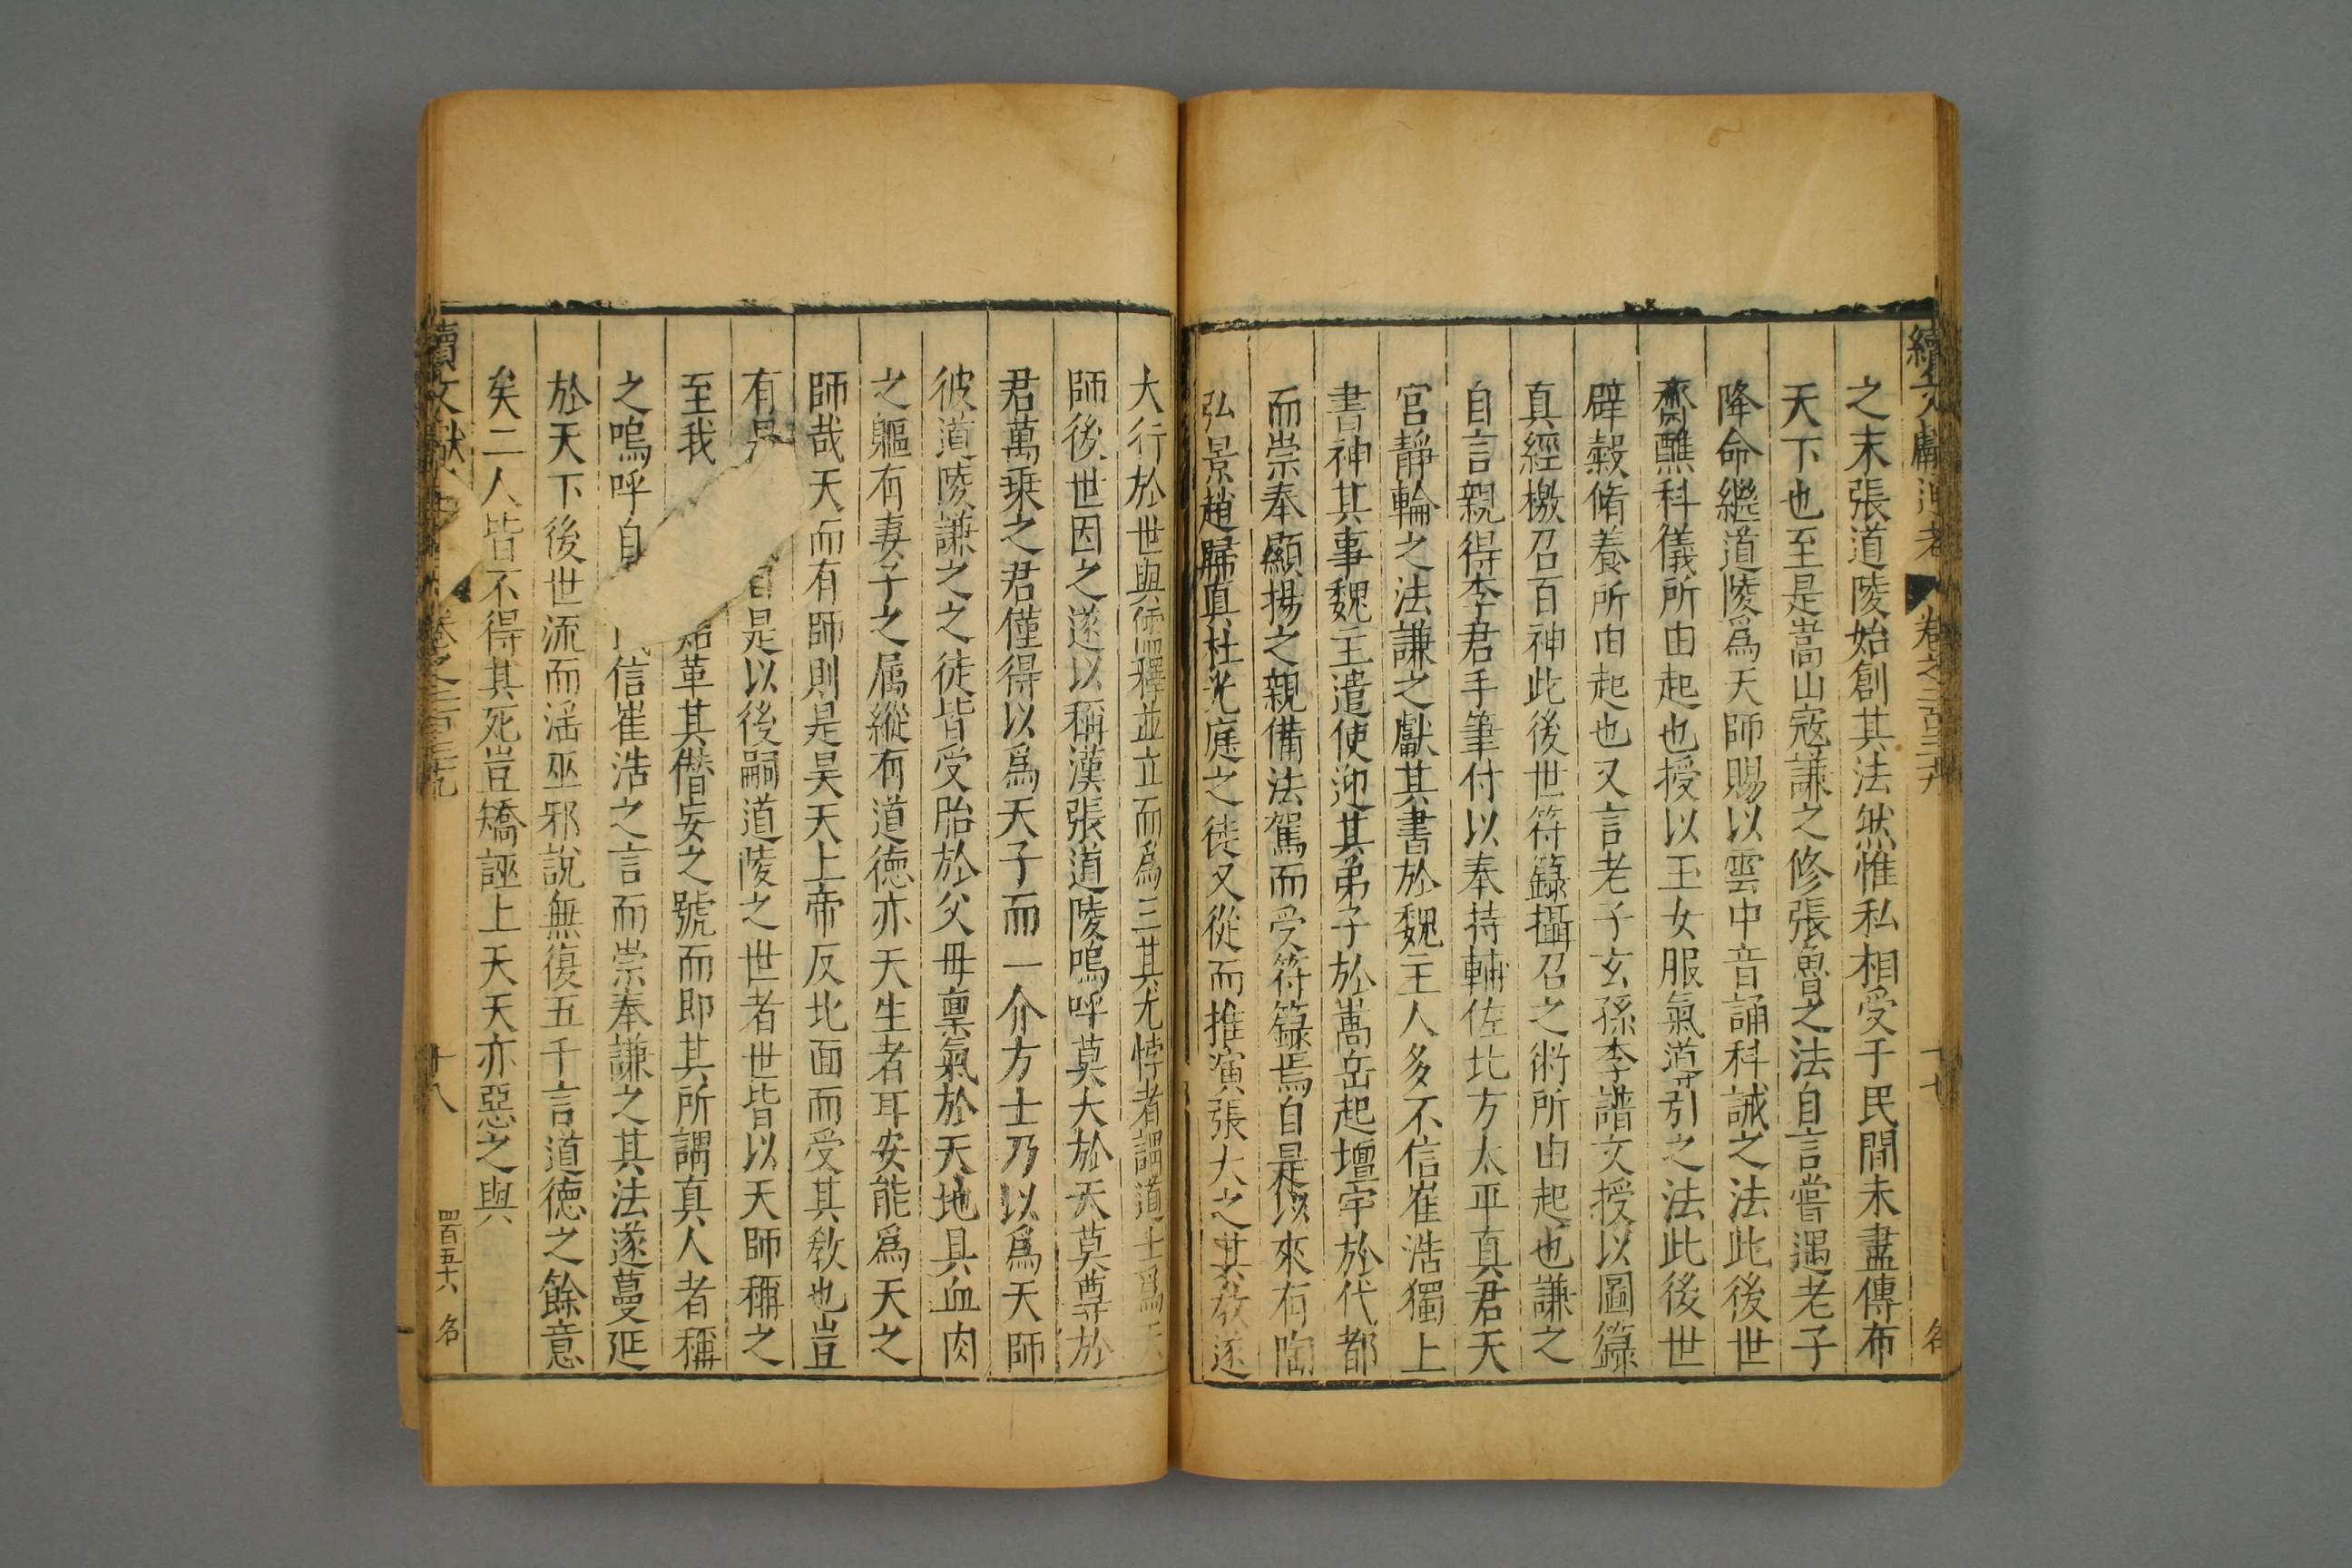 續文獻通考 卷之二百三十九 十七 名
之末張道陵始創其法然惟私相受于民間未盡傳布
天下也至是嵩山寇謙之修張魯之法自言嘗遇老子
降命繼道陵爲天師賜以雲中音誦科誡之法此後世
齋醮科儀所由起也授以玉女服氣導引之法此後世
辟穀脩養所由起也又言老子玄孫李譜文授以圖籙
真經檄召百神此後世符籙攝召之術所由起也謙之
自言親得李君手筆付以奉持輔佐北方太平真君天
宮靜輪之法謙之獻其書於魏主人多不信崔浩獨上
書神其事魏主遣使迎其弟子於嵩岳起壇宇於代都
而崇奉顯揚之親備法駕而受符籙焉自是以來有陶
弘景趙歸真杜光庭之徒又從而推演張大之其教遂
大行於世與儒釋並立而爲三其尤悖者謂道士爲天
師後世因之遂以稱漢張道陵嗚呼莫大於天莫尊於
君萬乗之君僅得以爲天子而一介方士乃以爲天師
彼道陵謙之之徒皆受胎於父母禀氣於天地具血肉
之軀有妻子之属縱有道德亦天生者耳安能爲天之
師哉天而有師則是昊天上帝反北面而受其敎也豈
有是 自是以後嗣道陵之世者世皆以天師稱之
至我 始革其僣妄之號而即其所謂真人者稱
之嗚呼自 信崔浩之言而崇奉謙之其法遂蔓延
於天下後世流而滛巫邪說無復五千言道德之餘意
矣二人皆不得其死豈矯誣上天天亦惡之與
續文獻 卷之二百三十九 十八 四百五十六 名